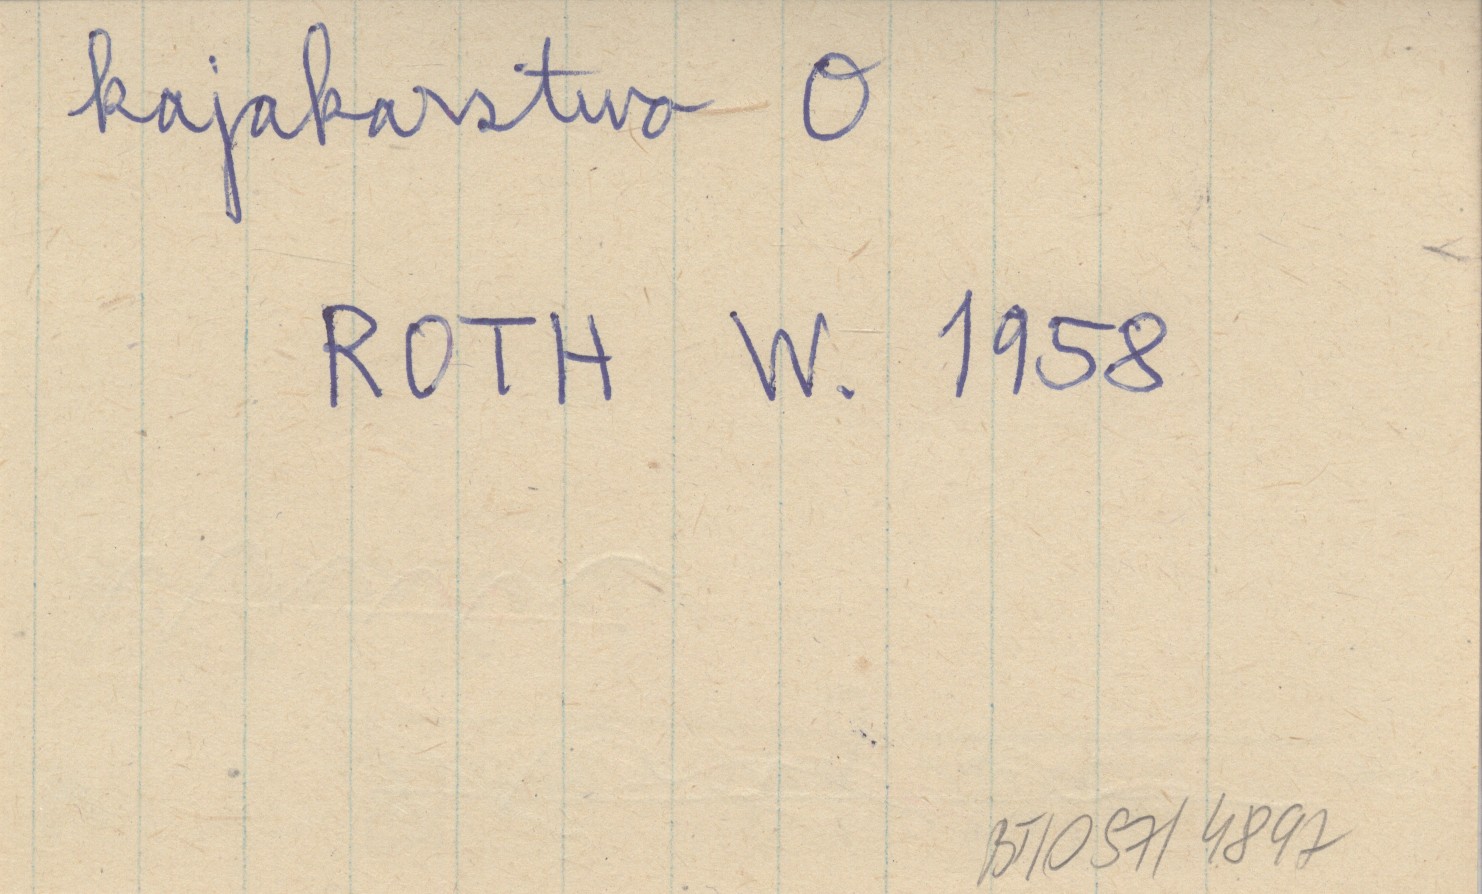 kajakarstwo O
ROTH W. 1958
BT/057/4897